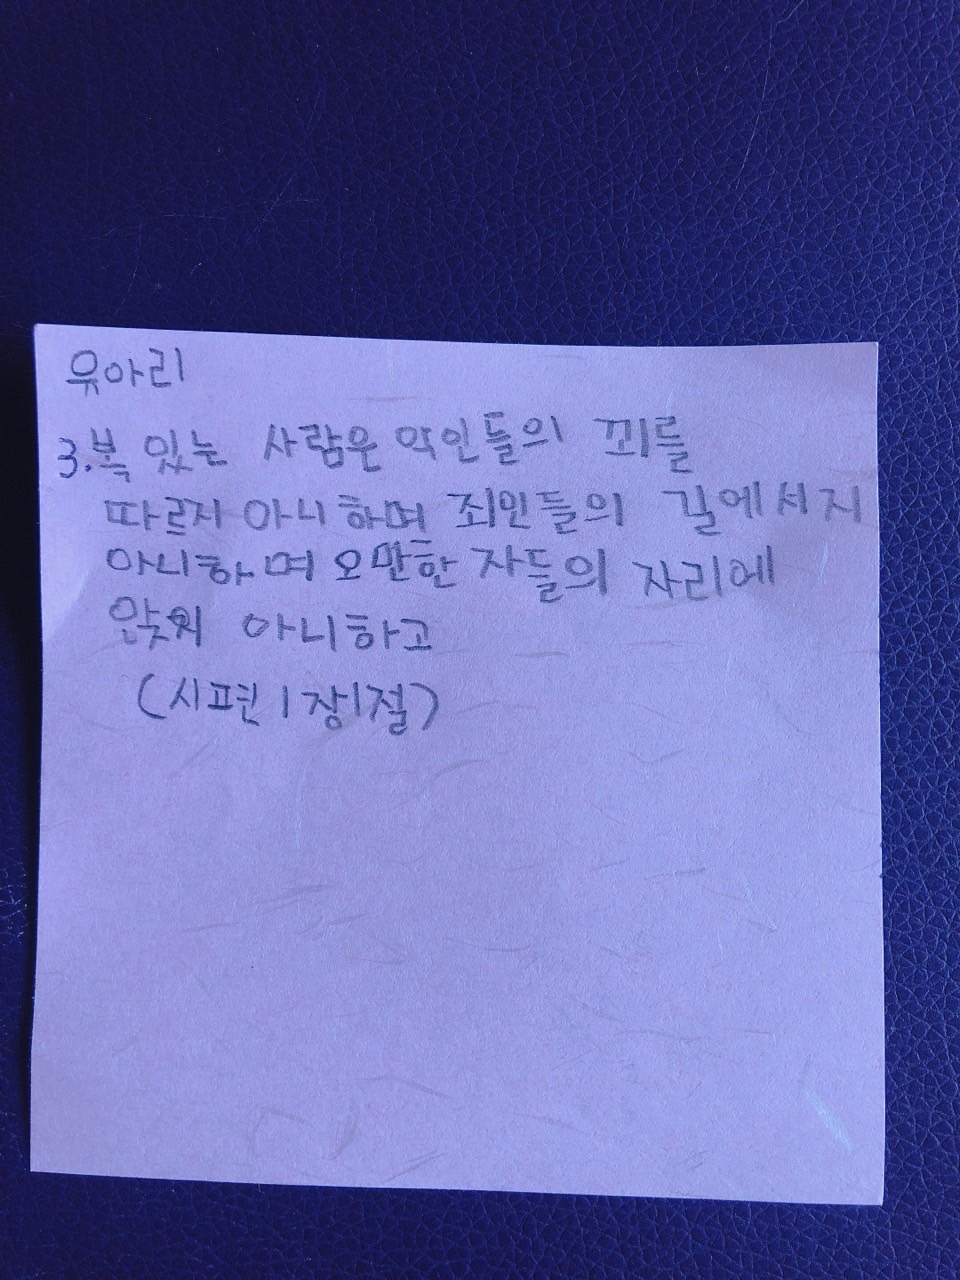 유아리
3. 복 있는 사람은 악인들의 꾀를
따르지 아니하며 죄인들의 길에서지
아니하며 오만한 자들의 자리에
앉지 아니하고
(시편 1장1절)